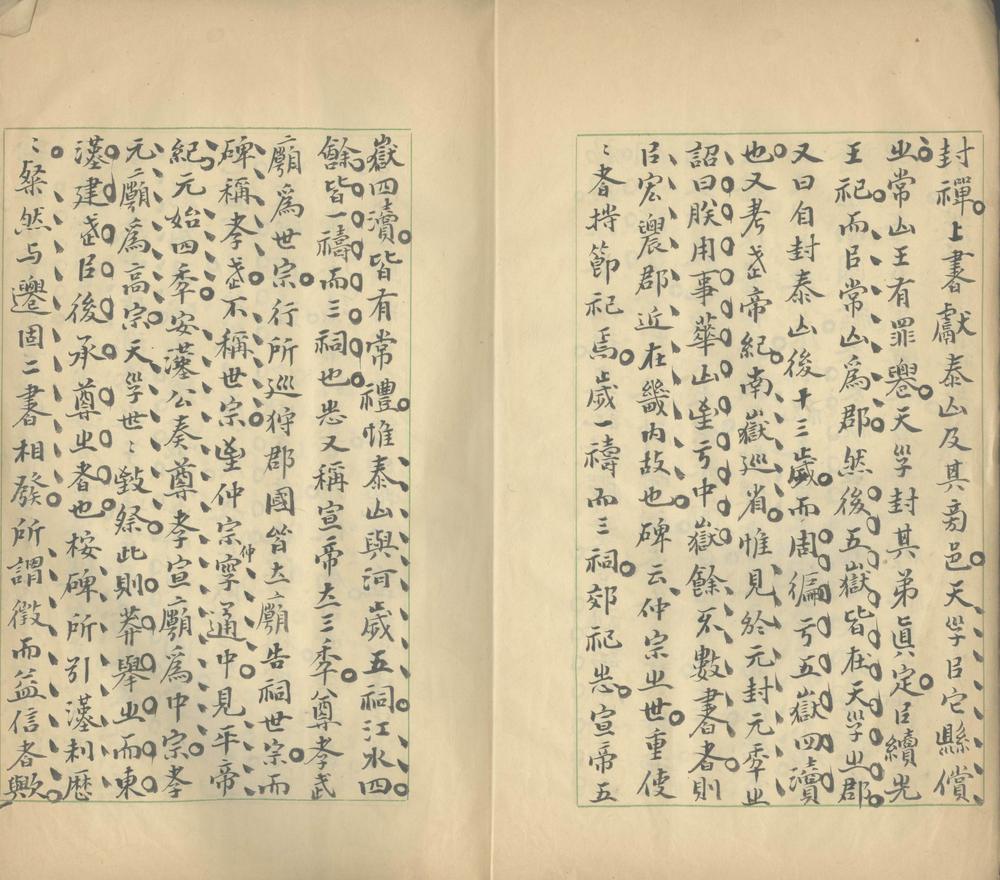 封禪上書獻泰山及其旁邑天子㠯它縣償
之常山王有罪䙴天子封其弟眞定㠯續先
王祀而㠯常山爲郡然後五嶽皆在天子之郡
又曰自封泰山後十三歲而周徧亏五嶽四瀆
也又考武帝紀南嶽巡省惟見於元封元秊㞢
詔曰朕用事華山至亏中嶽餘不數書者則
㠯宏農郡近在畿内故也碑云仲宗之世重使
〻者持節祀焉歲一禱而三祠郊祀志宣帝五
嶽四瀆皆有常禮惟泰山與河歲五祠江水四
餘皆一禱而三祠也志又稱宣帝立三秊尊孝武
廟爲世宗行所巡狩郡國皆立廟告祠世宗而
碑稱孝武不稱世宗至仲宗仲寧通中見平帝
紀元始四秊安漢公奏尊孝宣廟爲中宗孝
元廟爲高宗天子世〻獻祭此則莽舉之而東
漢建武㠯後承尊之者也桉碑所引漢利歷
〻粲然与遷固二書相發所謂徵而益信者歟